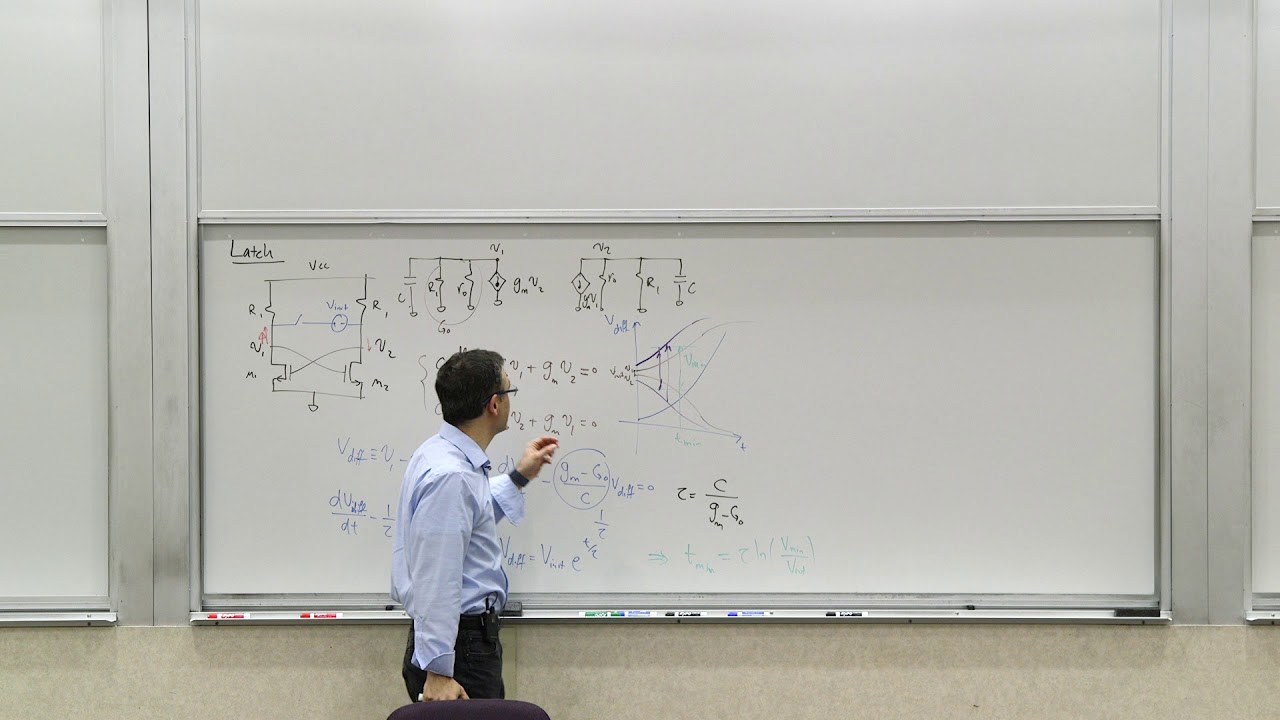 Latch
Vcc
R₁
R₁
Vinit
v₁
v₂
M₁
M₂
v₁
C
R₁
r₀
gₘv₂
G₀
v₂
gₘv₁
r₀
R₁
C
v₁ + gₘv₂ = 0
v₂ + gₘv₁ = 0
V_diff
Vmin
t_min
t
V_diff ≡ v₁ -
- (gₘ - G₀)/C V_diff = 0
1/τ
τ = C/(gₘ - G₀)
dV_diff/dt - 1/τ
V_diff = V_init e^(t/τ)
⇒ t_min = τ ln(V_min/V_init)